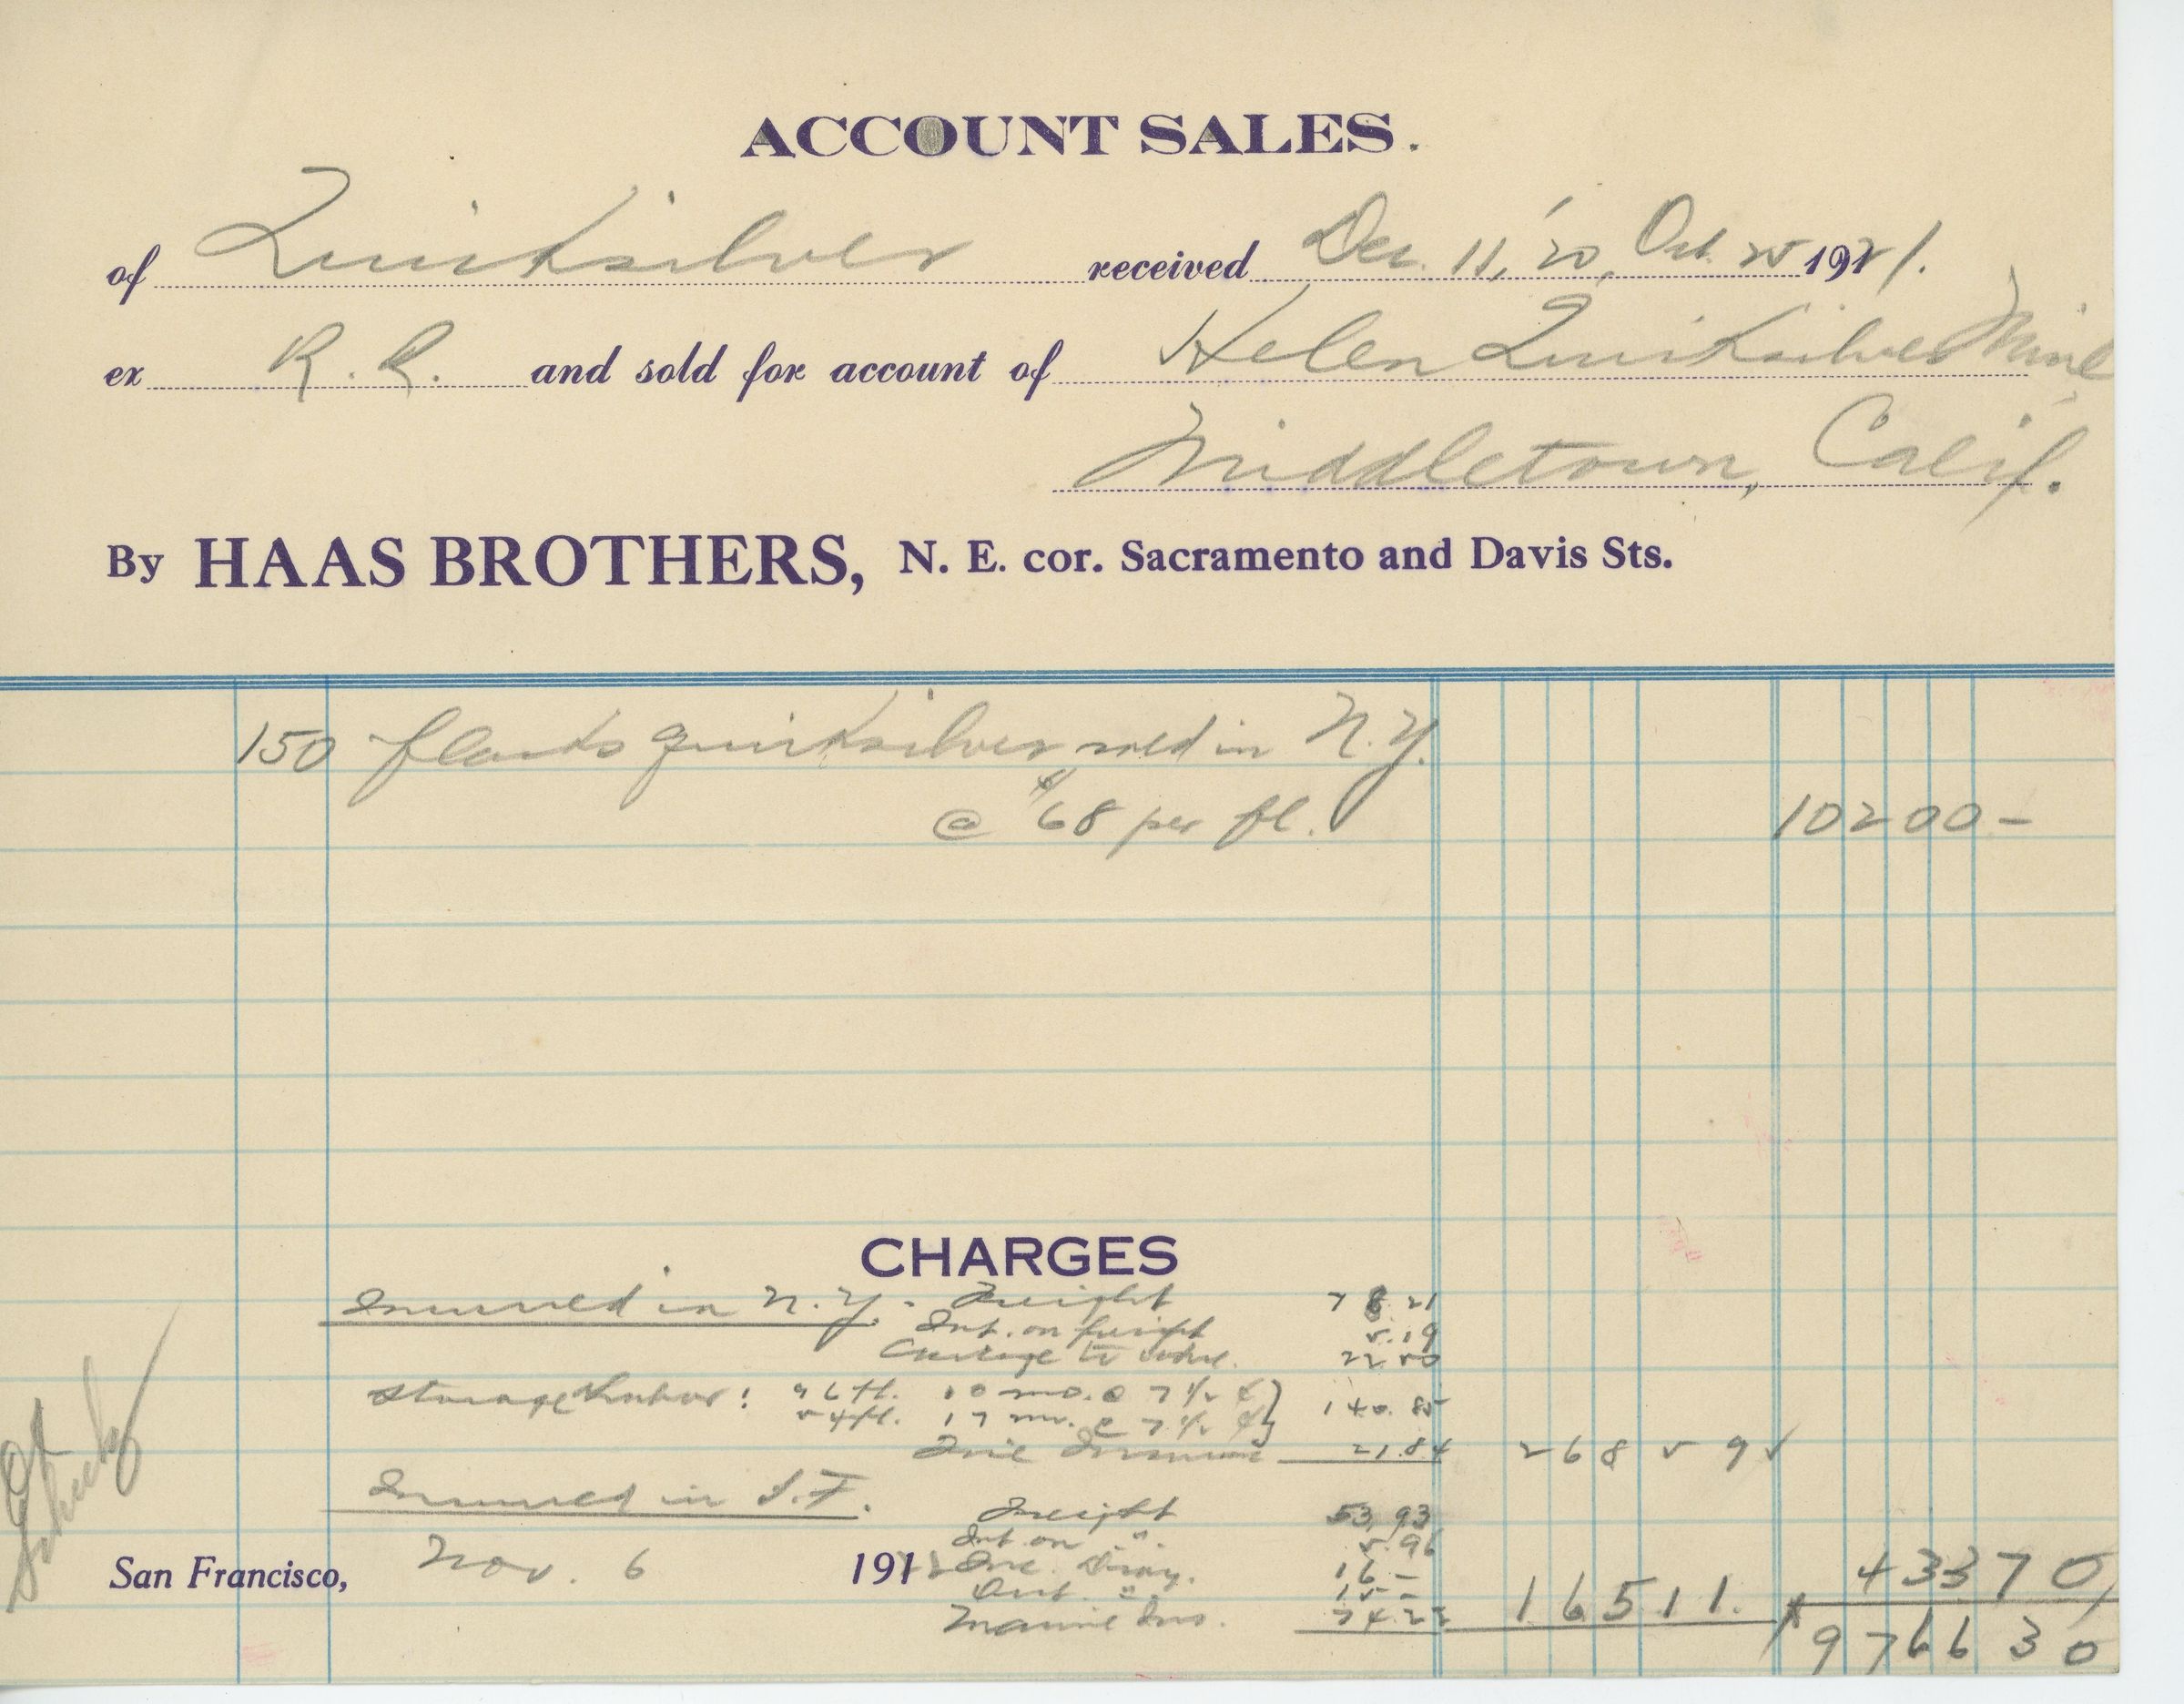 ACCOUNT SALES.
of Quicksilver received Dec. 11, '20, Oct. 25 1921.
ex R. R. and sold for account of Helen Quicksilver Mine
Middletown, Calif.
By HAAS BROTHERS, N. E. cor. Sacramento and Davis Sts.
150 flasks quicksilver sold in N.Y.
@ $68 per fl. 10200 –
CHARGES
Incurred in N.Y. - Freight 78 21
Int. on freight 5.19
Cartage to whse. 22 50
Storage & Labor: 96 fl. 10 mo. @ 7 1/2 ¢ } 140.85
54 fl. 17 mo. @ 7 1/2 ¢ }
Fire Insurance 21.84 268 59
Incurred in S.F. Freight 53,93
Int. on " 5.96
San Francisco, Nov. 6 191 Inc. Dray. 16 – 43370
Out. " 15 – 16511
Marine Ins. 74.22 976630